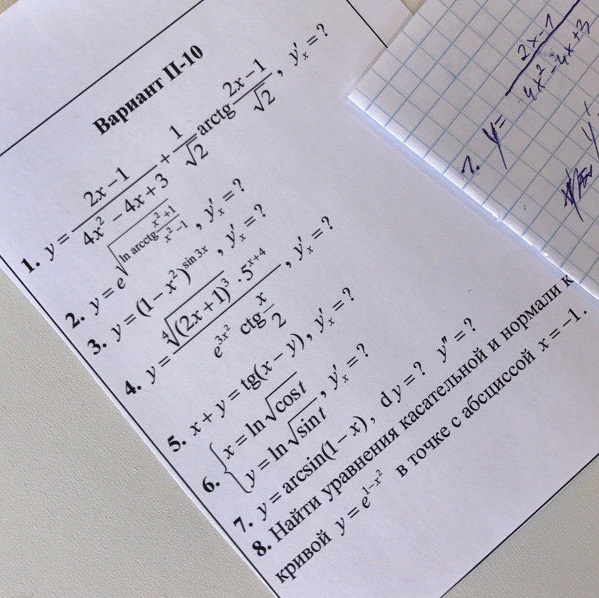 Вариант II-10
1. y = (2x − 1)/(4x² − 4x + 3) + (1/√2) arctg (2x − 1)/√2, y'ₓ = ?
2. y = e^√(ln arcctg (x² + 1)/(x² − 1)), y'ₓ = ?
3. y = (1 − x²)^(sin 3x), y'ₓ = ?
4. y = (⁴√((2x + 1)³) · 5^(x+4))/(e^(3x²) ctg x/2), y'ₓ = ?
5. x + y = tg(x − y), y'ₓ = ?
6. { x = ln √cos t
y = ln √sin t , y'ₓ = ?
7. y = arcsin(1 − x), dy = ? y'' = ?
8. Найти уравнения касательной и нормали к
кривой y = e^(1−x²) в точке с абсциссой x = −1.
1. y = (2x-1)/(4x²-4x+3)